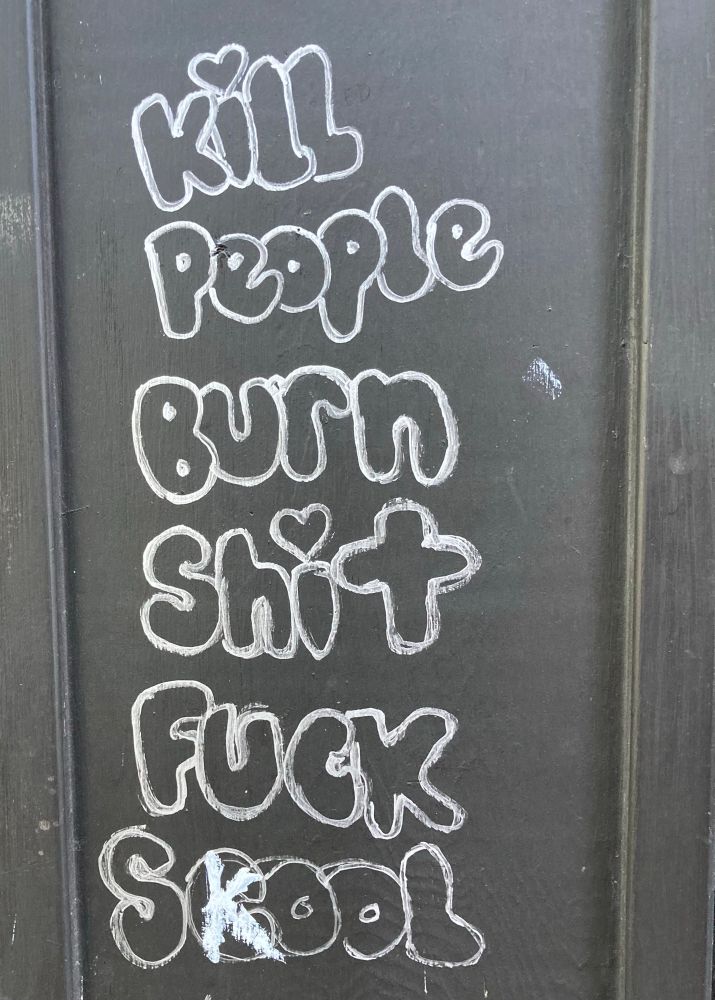 Kill
People
Burn
Shit
Fuck
SKool